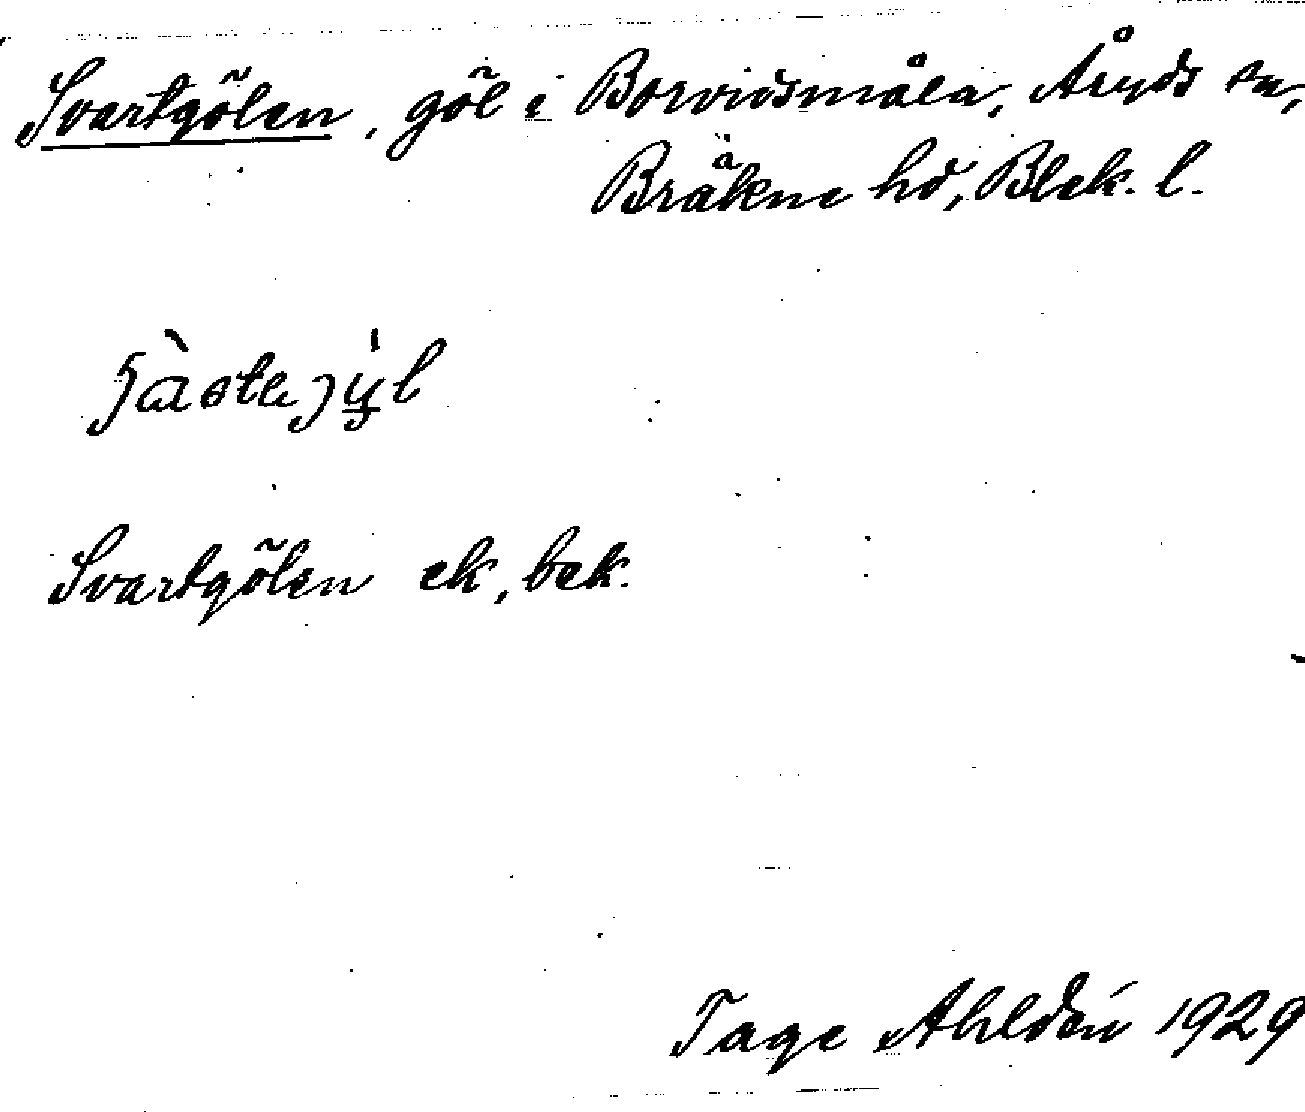 Svartgölen, göl i Borvidsmåla, Åryds sn,
Bräkne hd, Blek. l.
Svartgölen ek, bek.
Tage Ahldén 1929